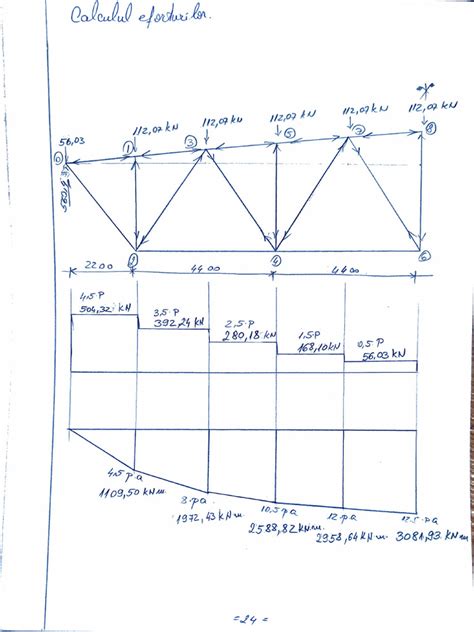 Calculul eforturilor.
56,03
112,07 kN
112,07 kN
112,07 kN
112,07 kN
112,07 kN
1
3
5
7
8
4
6
2200
4400
4400
4,5·P
504,32 kN
3,5·P
392,24 kN
2,5·P
280,18 kN
1,5P
168,10 kN
0,5 P
56,03 kN
4,5·pa
1109,50 kN·m
8·pa
1972,43 kN·m
10,5·pa
2588,82 kN·m
12·pa
2958,64 kN·m
12,5·pa
3081,93 kN·m
=24=